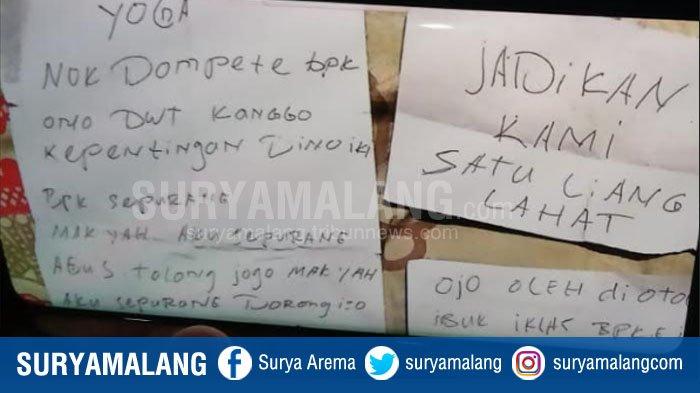 YOGA
NOK Dompete bpk
ONO DWT KANGGO
KepentinGan DINO iKi
BPK SepuraNe
MAK YAH AKU SEPURANE
AGUS tolong jogo MAK YAH
AKU SepuraNe DORONG iso
JADiKAN
KAMi
SATU LiANG
LAHAT
OJO OLEH di OTO
iBUK iKLAS BPK
SURYAMALANG.com
suryamalang.tribunnews.com
SURYAMALANG
Surya Arema
suryamalang
suryamalangcom